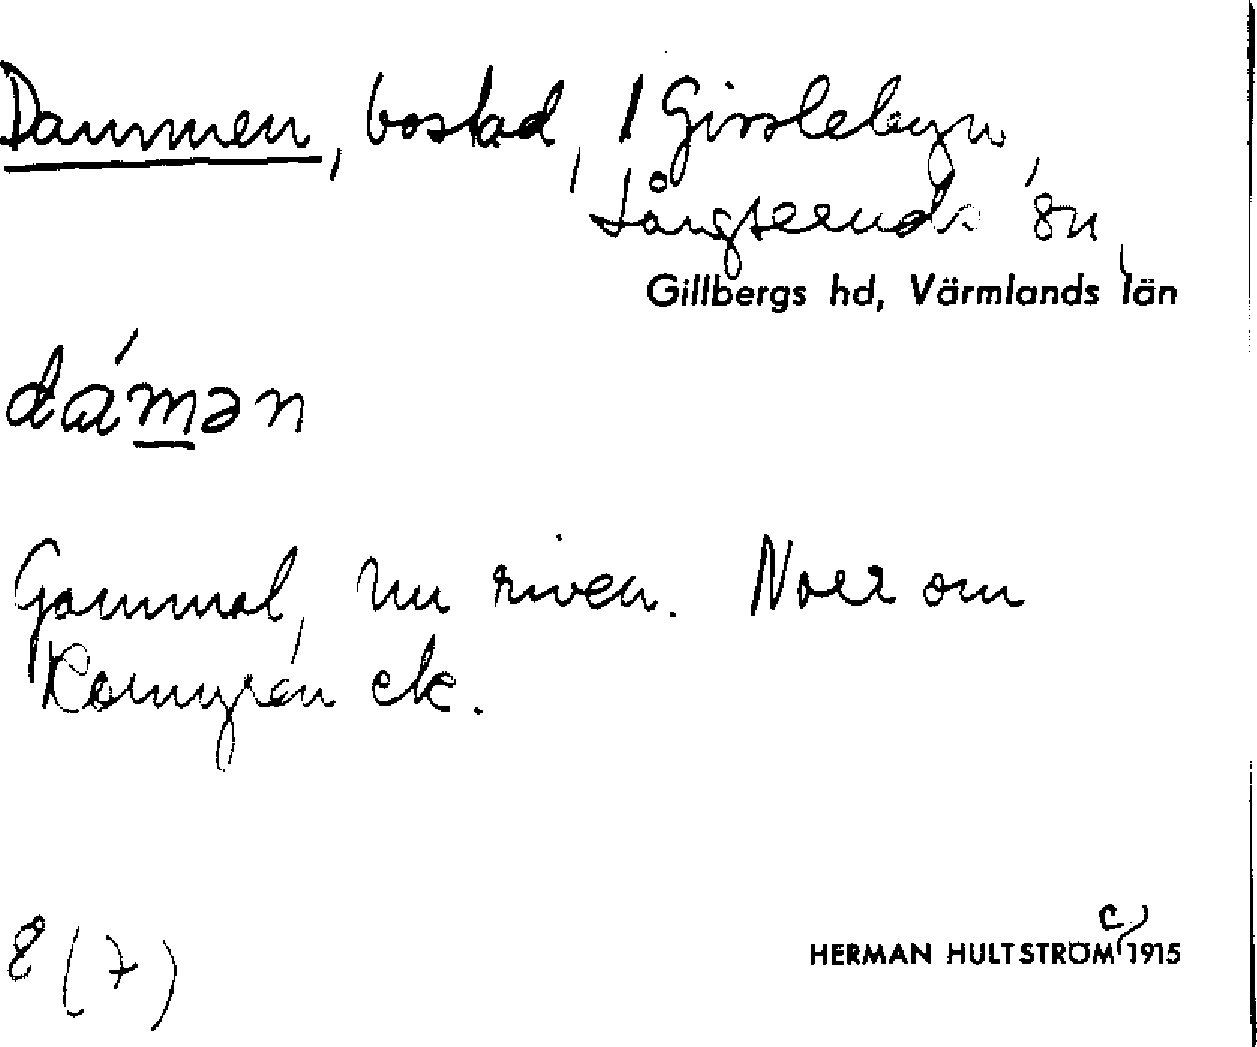 Dammen, bostad, 1 Gisslebyn,
Långseruds sn,
Gillbergs hd, Värmlands län
dámən
Gammal, nu riven. Norr om
ek.
8 (7)
HERMAN HULTSTRÖM c 1915